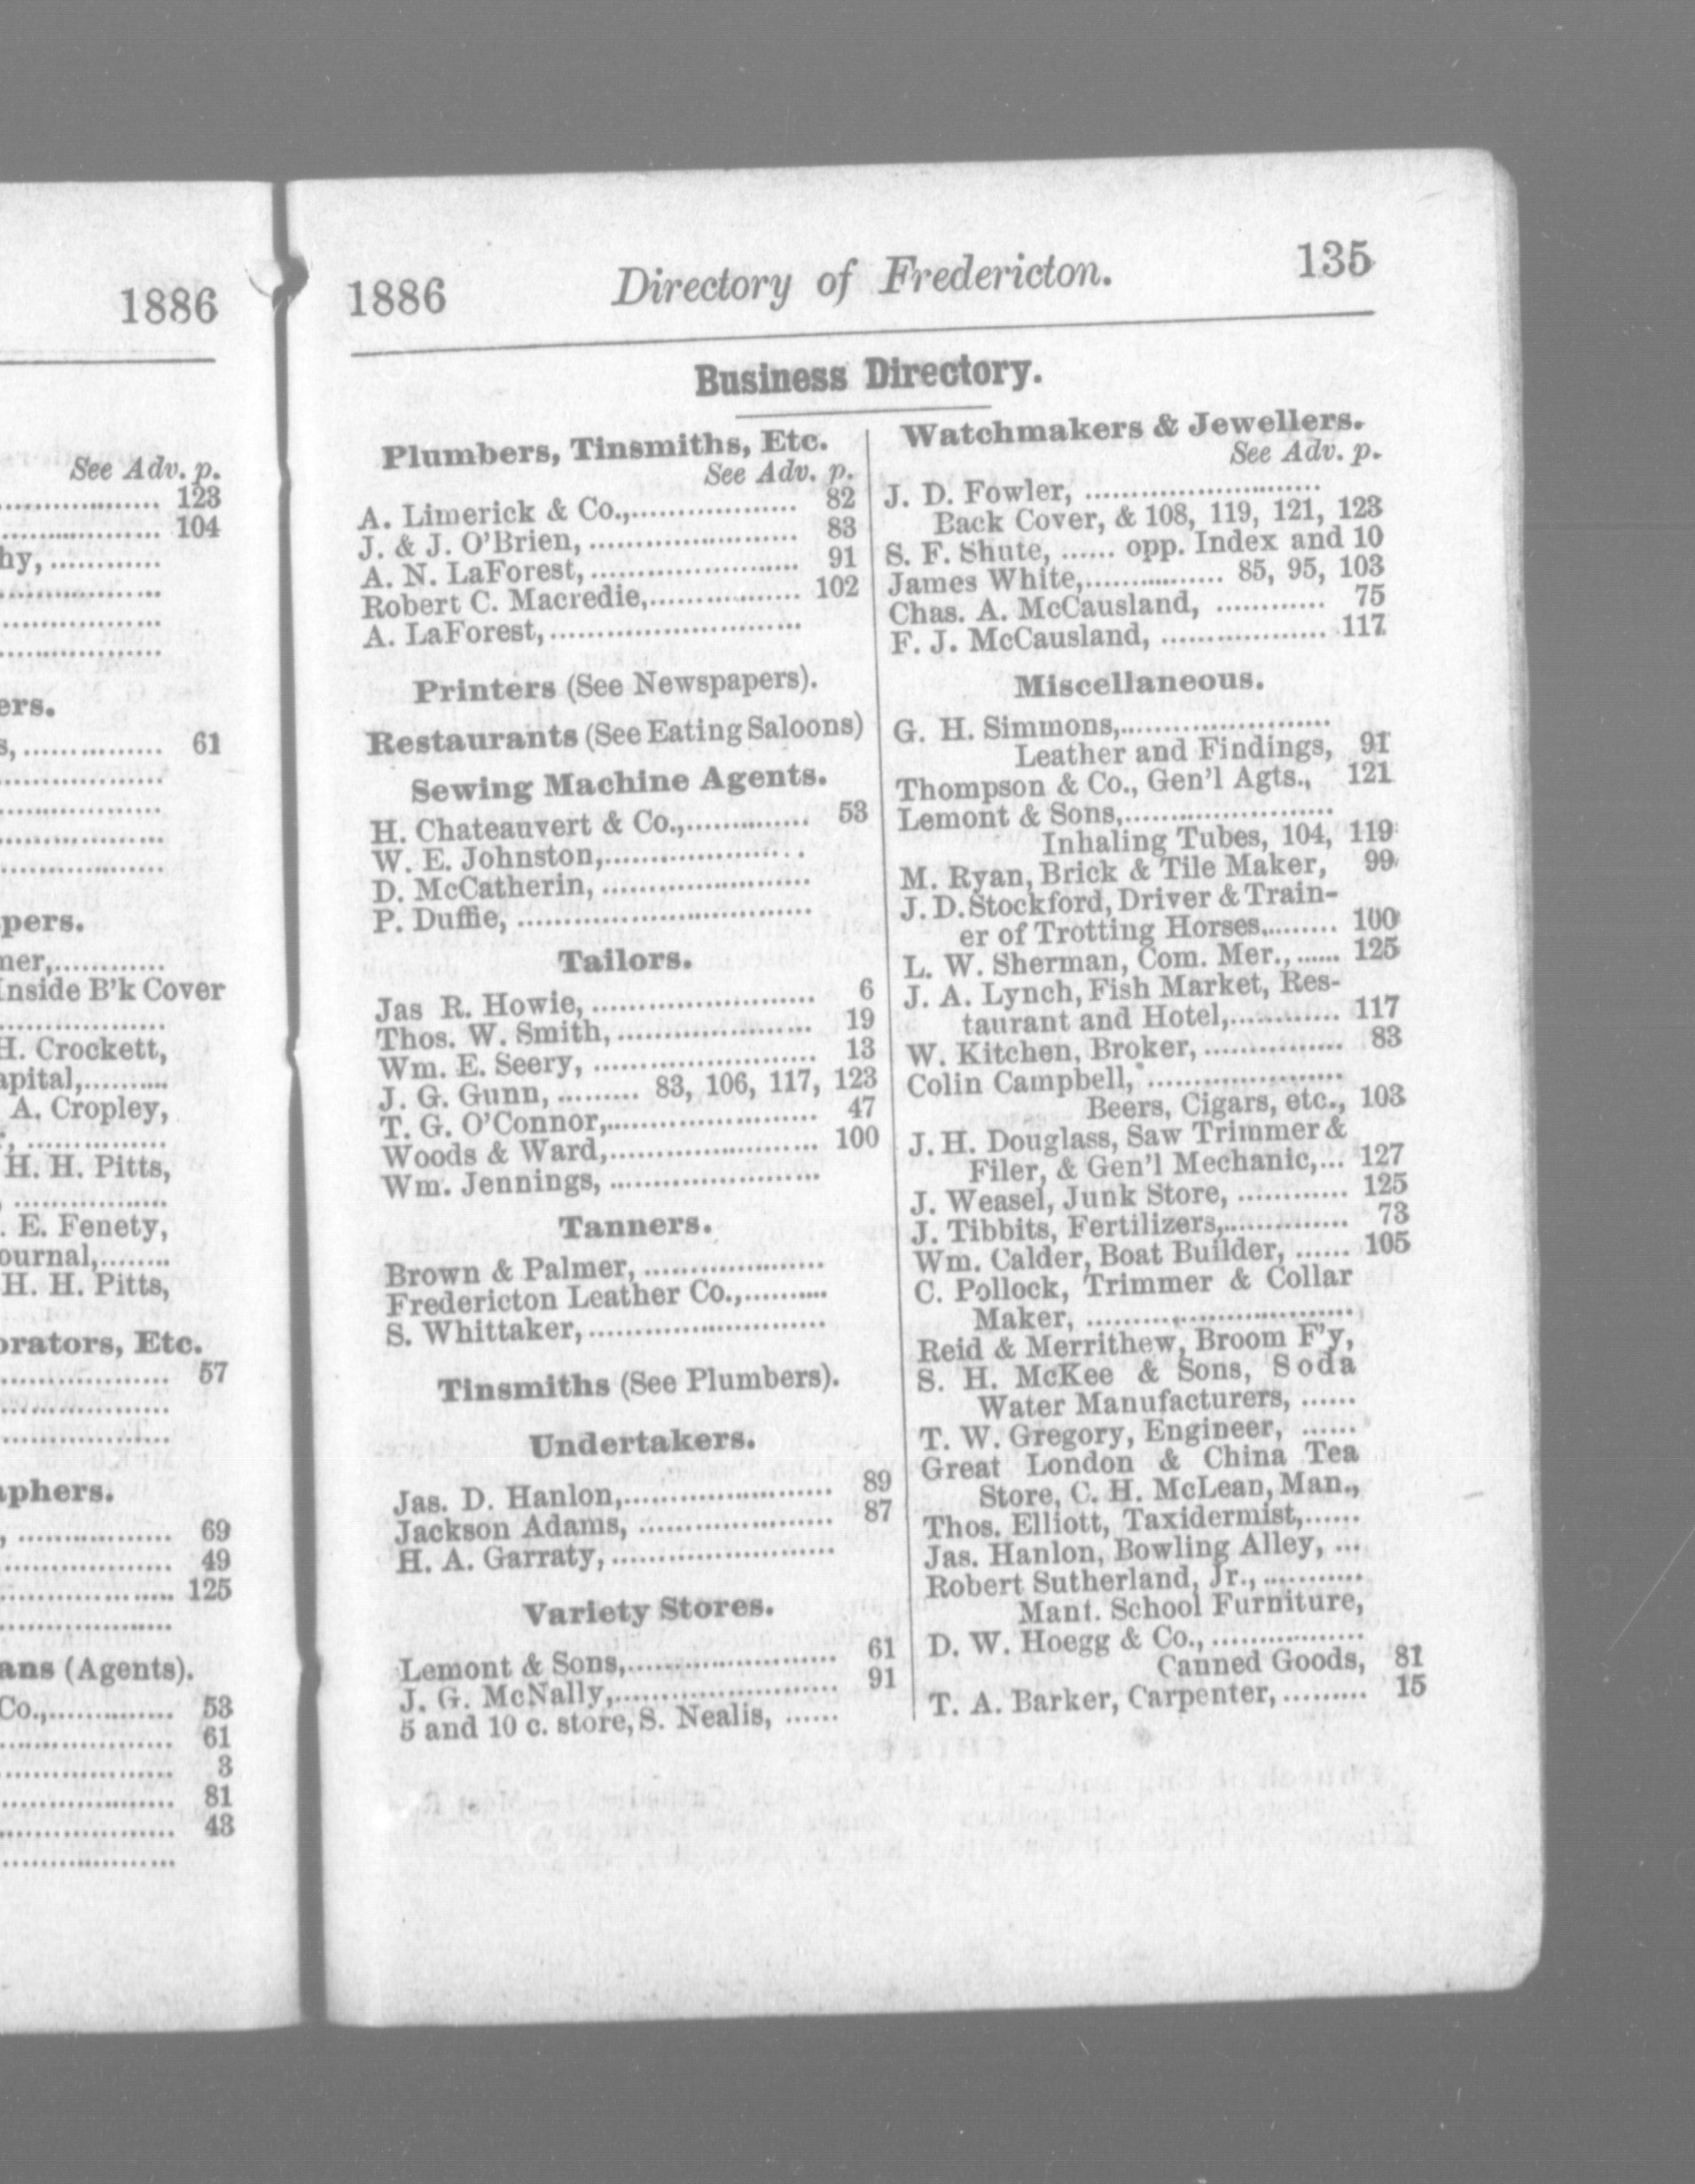 1886
See Adv. p.
123
104
hy,
ers.
s, 61
pers.
ner,
Inside B'k Cover
H. Crockett,
apital,
A. Cropley,
H. H. Pitts,
. E. Fenety,
ournal,
H. H. Pitts,
orators, Etc.
57
aphers.
69
49
125
ans (Agents).
Co., 53
61
3
81
43
1886 Directory of Fredericton. 135
Business Directory.
Plumbers, Tinsmiths, Etc.
See Adv. p.
A. Limerick & Co., 82
J. & J. O'Brien, 83
A. N. LaForest, 91
Robert C. Macredie, 102
A. LaForest,
Printers (See Newspapers).
Restaurants (See Eating Saloons)
Sewing Machine Agents.
H. Chateauvert & Co., 53
W. E. Johnston,
D. McCatherin,
P. Duffie,
Tailors.
Jas R. Howie, 6
Thos. W. Smith, 19
Wm. E. Seery, 13
J. G. Gunn, 83, 106, 117, 123
T. G. O'Connor, 47
Woods & Ward, 100
Wm. Jennings,
Tanners.
Brown & Palmer,
Fredericton Leather Co.,
S. Whittaker,
Tinsmiths (See Plumbers).
Undertakers.
Jas. D. Hanlon, 89
Jackson Adams, 87
H. A. Garraty,
Variety Stores.
Lemont & Sons, 61
J. G. McNally, 91
5 and 10 c. store, S. Nealis,
Watchmakers & Jewellers.
See Adv. p.
J. D. Fowler,
Back Cover, & 108, 119, 121, 123
S. F. Shute, ...... opp. Index and 10
James White, 85, 95, 103
Chas. A. McCausland, 75
F. J. McCausland, 117
Miscellaneous.
G. H. Simmons,
Leather and Findings, 91
Thompson & Co., Gen'l Agts., 121
Lemont & Sons,
Inhaling Tubes, 104, 119
M. Ryan, Brick & Tile Maker, 99
J. D. Stockford, Driver & Train-
er of Trotting Horses, 100
L. W. Sherman, Com. Mer., 125
J. A. Lynch, Fish Market, Res-
taurant and Hotel, 117
W. Kitchen, Broker, 83
Colin Campbell,
Beers, Cigars, etc., 103
J. H. Douglass, Saw Trimmer &
Filer, & Gen'l Mechanic, 127
J. Weasel, Junk Store, 125
J. Tibbits, Fertilizers, 73
Wm. Calder, Boat Builder, 105
C. Pollock, Trimmer & Collar
Maker,
Reid & Merrithew, Broom F'y,
S. H. McKee & Sons, Soda
Water Manufacturers,
T. W. Gregory, Engineer,
Great London & China Tea
Store, C. H. McLean, Man.,
Thos. Elliott, Taxidermist,
Jas. Hanlon, Bowling Alley,
Robert Sutherland, Jr.,
Manf. School Furniture,
D. W. Hoegg & Co.,
Canned Goods, 81
T. A. Barker, Carpenter, 15